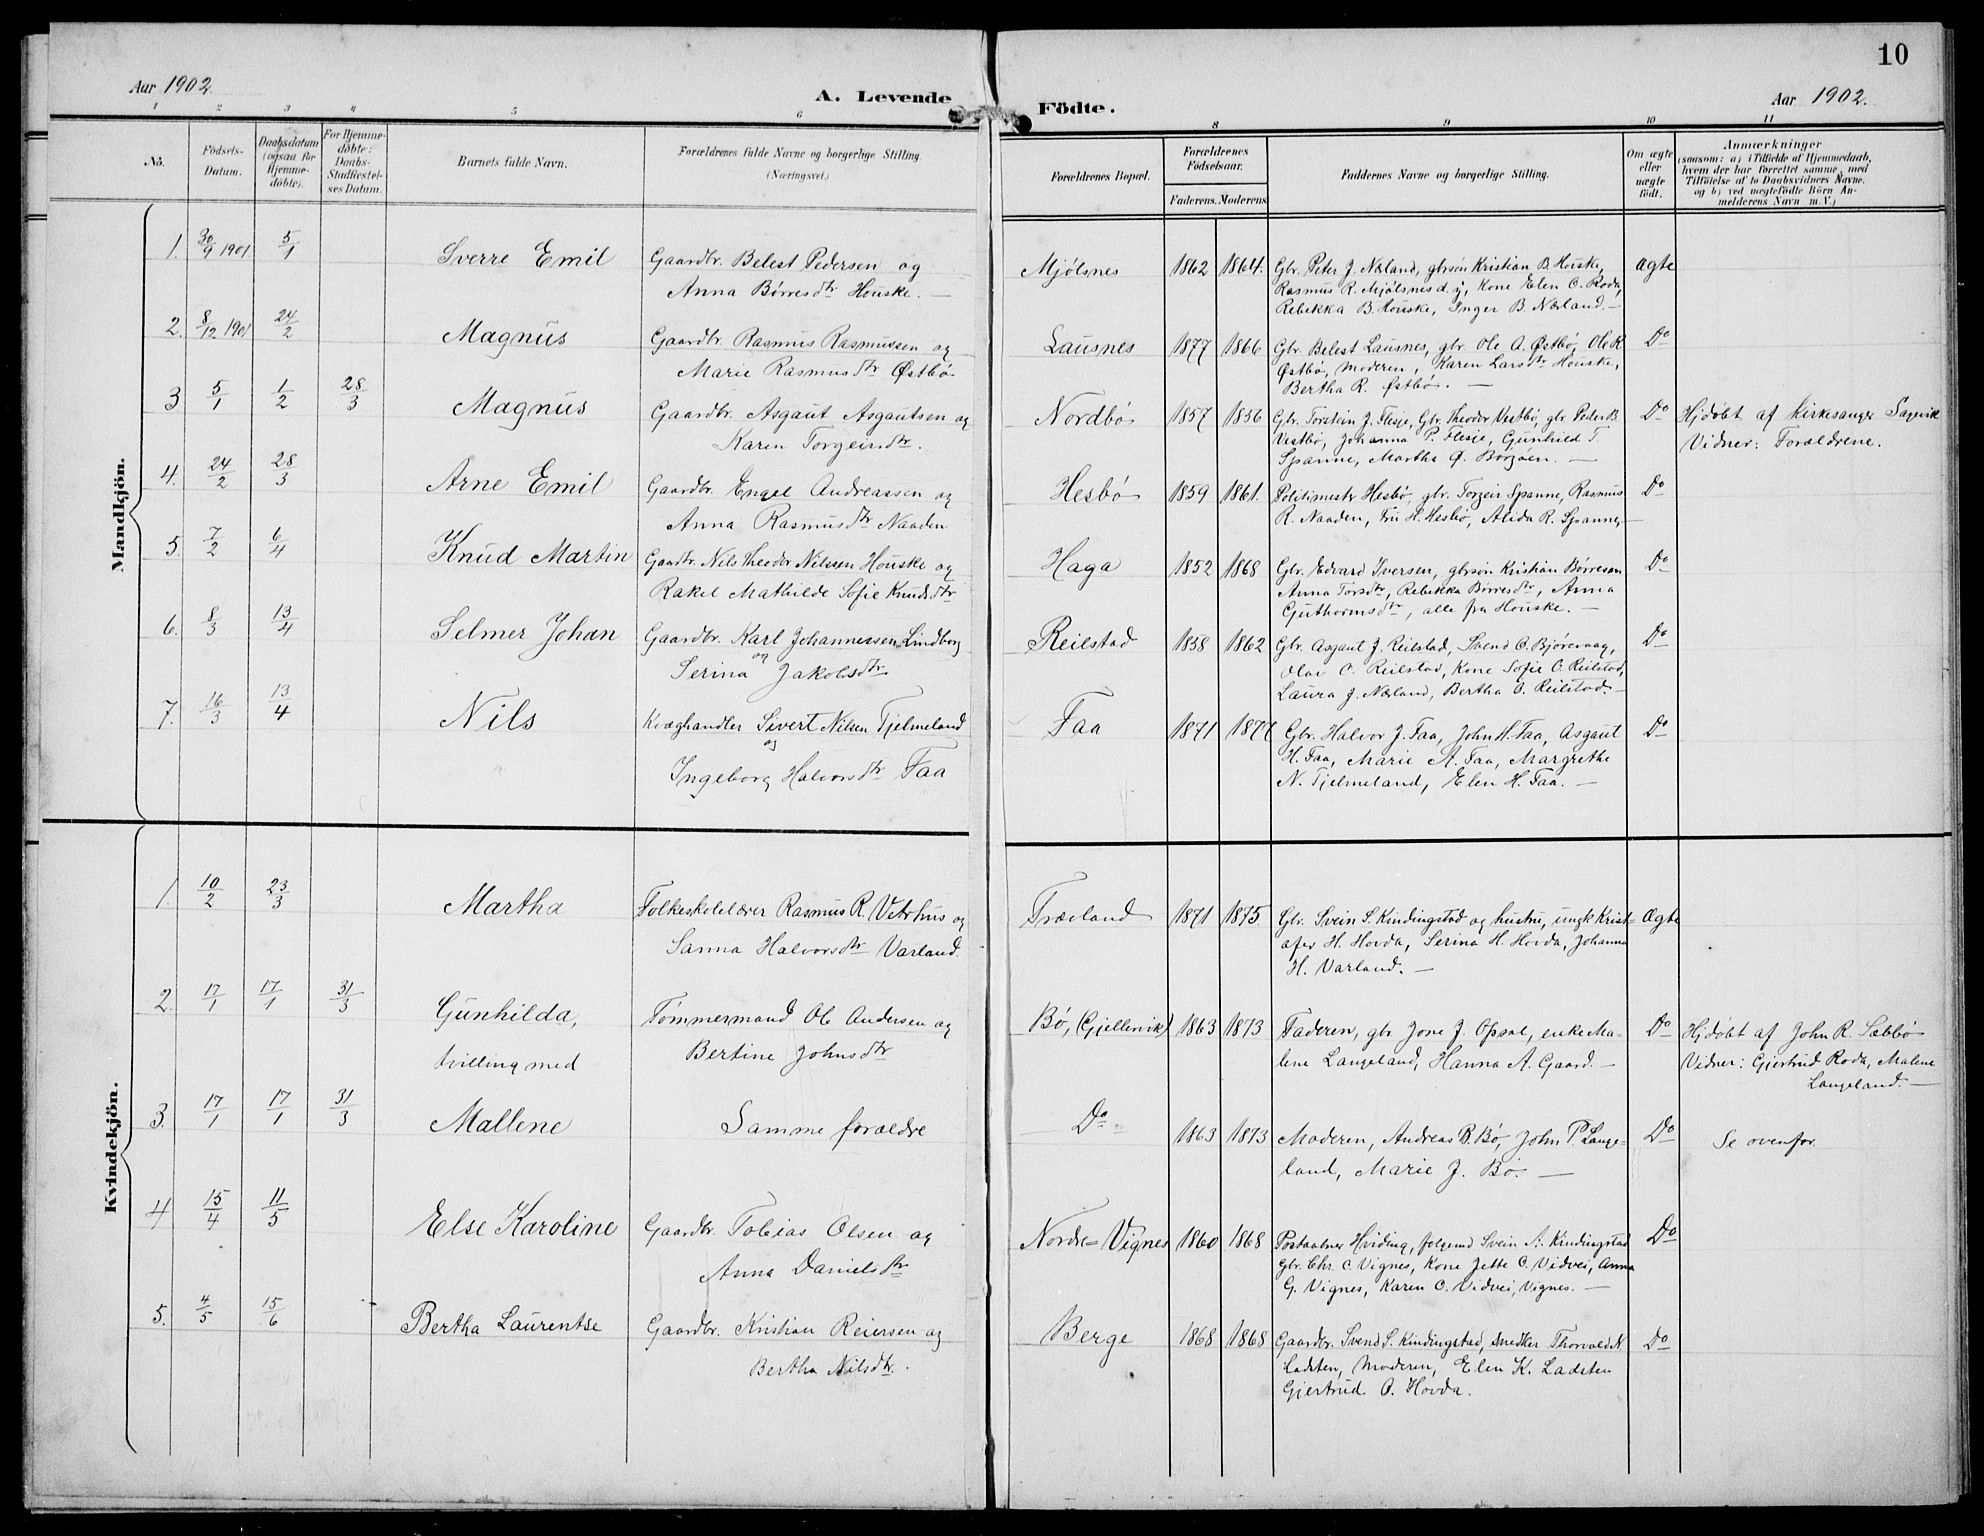 10
Aar 1902.
A. Levende Födte.
Aar 1902.
1 2 3 4 5 6 8 9 10 11
No.
Födsels-
Datum.
Daabsdatum
(ogsaa for
Hjemme-
döbte).
For Hjemme-
döbte:
Daabs-
Stadfæstel-
ses Datum.
Barnets fulde Navn.
Forældrenes fulde Navne og borgerlige Stilling.
(Næringsvei.)
Forældrenes Bopæl.
Forældrenes
Födselsaar.
Faderens. Moderens.
Faddernes Navne og borgerlige Stilling.
Om ægte
eller
uægte
födt.
Anmærkninger
(saasom: a) i Tilfælde af Hjemmedaab,
hvem der har forrettet samme, med
Tilföielse af to Daabsvidners Navne.
og b) ved uægtefödte Börn An-
melderens Navn m. V.)
Mandkjön.
1. 30/9 1901 5/1 Sverre Emil Gaardbr. Belest Pedersen og
Anna Børresdtr Houske. —
Mjølsnes 1862 1864. Gbr. Peter J. Næland, gbrsøn Kristian B. Houske,
Rasmus R. Mjølsnes d. y., Kone Elen O. Roda,
Rebekka B. Houske, Inger B. Næland. —
ægte
2. 8/12 1901 24/2 Magnus Gaardbr. Rasmus Rasmussen og
Marie Rasmusdtr Østbø
Lausnes 1877 1866 Gbr. Belest Lausnes, gbr. Ole A. Østbø, Ole R.
Østbø, Moderen, Karen Larsdtr Houske,
Bertha R. Østbø. —
Do
3 5/1 1/2 28/3 Magnus Gaardbr. Asgaut Asgautsen og
Karen Torgeirsdtr.
Nordbø 1857 1856 Gbr. Torstein J. Flesje, Gbr. Theodor Vestbø, gbr. Peder B.
Vestbø, Johanna P. Flesje, Gunhild T.
Spanne, Martha Ø. Borgøen. —
Do Hjdøbt af Kirkesanger Sagvik
Vidner: Forældrene.
4. 24/2 28/3 Arne Emil Gaardbr. Engel Andreassen og
Anna Rasmusdtr Naaden
Hesbø 1859 1861. Politimestr Hesbø, gbr. Torgeir Spanne, Rasmus
R. Naaden, Fru H. Hesbø, Alida R. Spanne, —
Do
5. 7/2 6/4 Knud Martin Gaardbr. Nils Theodor Nilssen Houske og
Rakel Mathilde Sofie Knudsdtr
Haga 1852 1868 Gbr. Edvard Iversen, gbrsøn Kristian Børresen
Anna Torsdtr, Rebekka Børresdtr, Anna
Guthormsdtr, alle fra Houske. —
Do
6. 8/3 13/4 Selmer Johan Gaardbr. Karl Johannessen Lindborg
og
Serina Jakobsdtr
Reilstad 1858 1862 Gbr. Asgaut J. Reilstad, Svend O. Bjørevaag,
Olav O. Reilstad, Kone Sofie O. Reilstad,
Laura J. Næland, Bertha O. Reilstad. —
Do
7. 16/3 13/4 Nils Kvæghandler Sivert Nilsen Tjelmeland
og
Ingeborg Halvorsdtr Faa
Faa 1871 1877 Gbr. Halvor J. Faa, John H. Faa, Asgaut
H. Faa, Marie A. Faa, Margrethe
N. Tjelmeland, Elen H. Faa. —
Do
Kvindekjön.
1. 10/2 23/3 Martha Folkeskolelærer Rasmus R. Vetrhus og
Sanna Halvorsdtr Varland.
Træland 1871 1875. Gbr. Svein S. Kindingstad og hustru, ungk Krist-
afer H. Hovda, Serina H. Hovda, Johanna
H. Varland. —
Ægte
2. 17/1 17/1 31/3 Gunhilda,
tvilling med
Tømmermand Ole Andersen og
Bertine Johnsdtr
Bø, (Gjellevik) 1863 1873 Faderen, gbr Jone J. Opsal, enke Ma-
lene Langeland, Hanna A. Gaard. —
Do Hjdøbt af John R. Sæbbø
Vidner: Gjertrud Roda, Malene
Langeland. —
3. 17/1 17/1 31/3 Mallene Samme forældre
Do 1863 1873 Moderen, Andreas B. Bø, John P. Lange-
land, Marie J. Bø. —
Do Se ovenfor.
4 15/4 11/5 Else Karoline Gaardbr. Tobias Olsen og
Anna Danielsdtr
Nordre=Vignes 1860 1868 Postaabner Hviding, Svein A. Kindingstad
Gbr. Chr. C. Vignes, Kone Jette C. Vidvei, Anna
G. Vignes, Karen C. Vidvei, Vignes. —
Do
5. 4/5 15/6 Bertha Laurentse Gaardbr. Kristian Reiersen og
Bertha Nilsdtr.
Berge 1868 1868 Gaardbr. Svend S. Kindingstad, snedker Thorvald N.
Ladsten, Moderen, Elen K. Ladsten
Gjertrud O. Hovda.
Do